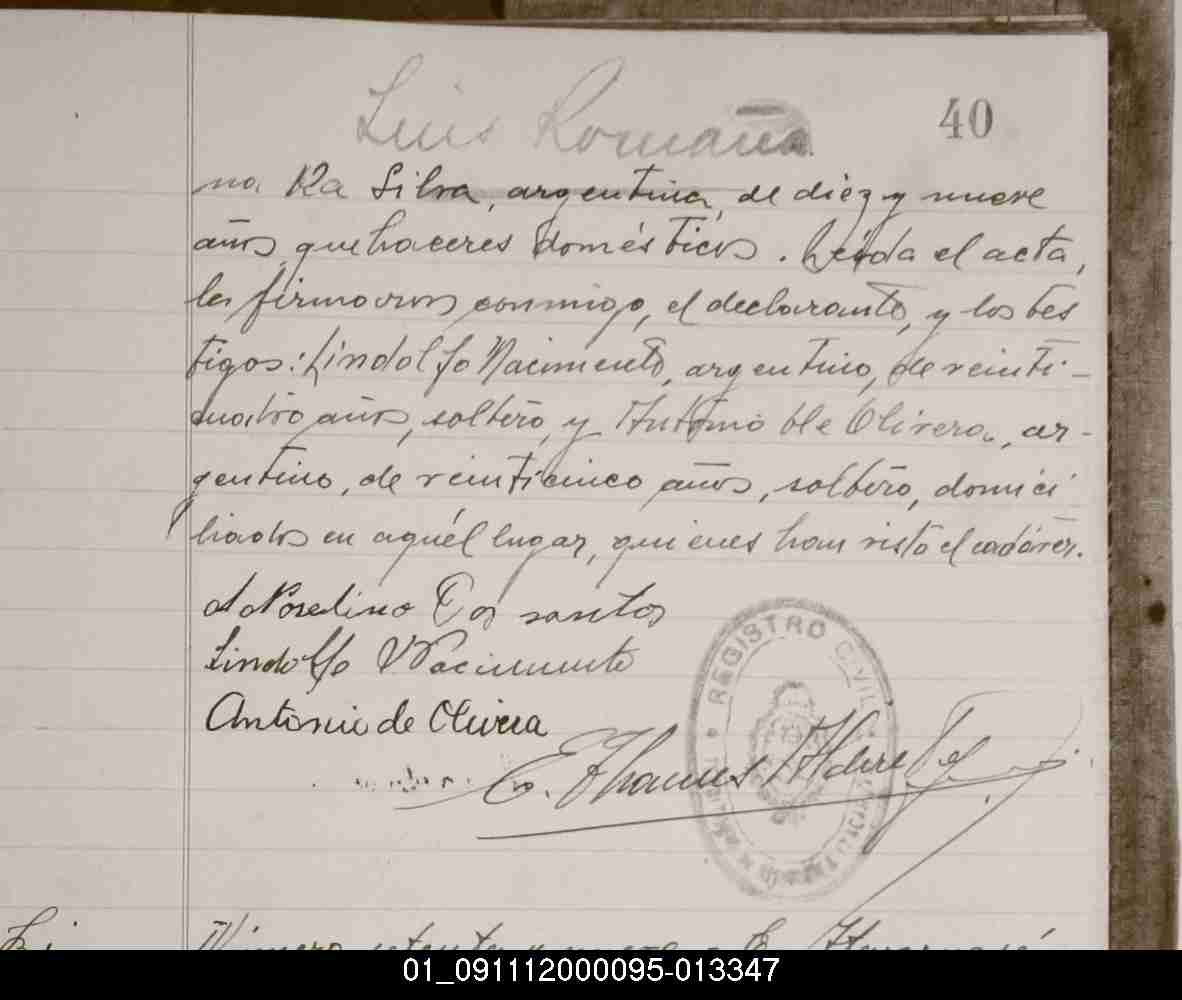 Luis Romaña
40
na Da Silva, argentina, de diez y nueve
años, quehaceres domésticos. Leída el acta,
la firmaron conmigo, el declarante, y los tes
tigos: Lindolfo Nacimento, argentino, de veinti-
cuatro años, soltero, y Antonio de Olivera, ar-
gentino, de veinticinco años, soltero, domici
liados en aquél lugar, quienes han visto el cadáver.
Dos santos
Lindolfo Nacimento
Antonio de Olivera
E. Thames
REGISTRO CIVIL
Número setenta y nueve - E
01_091112000095-013347